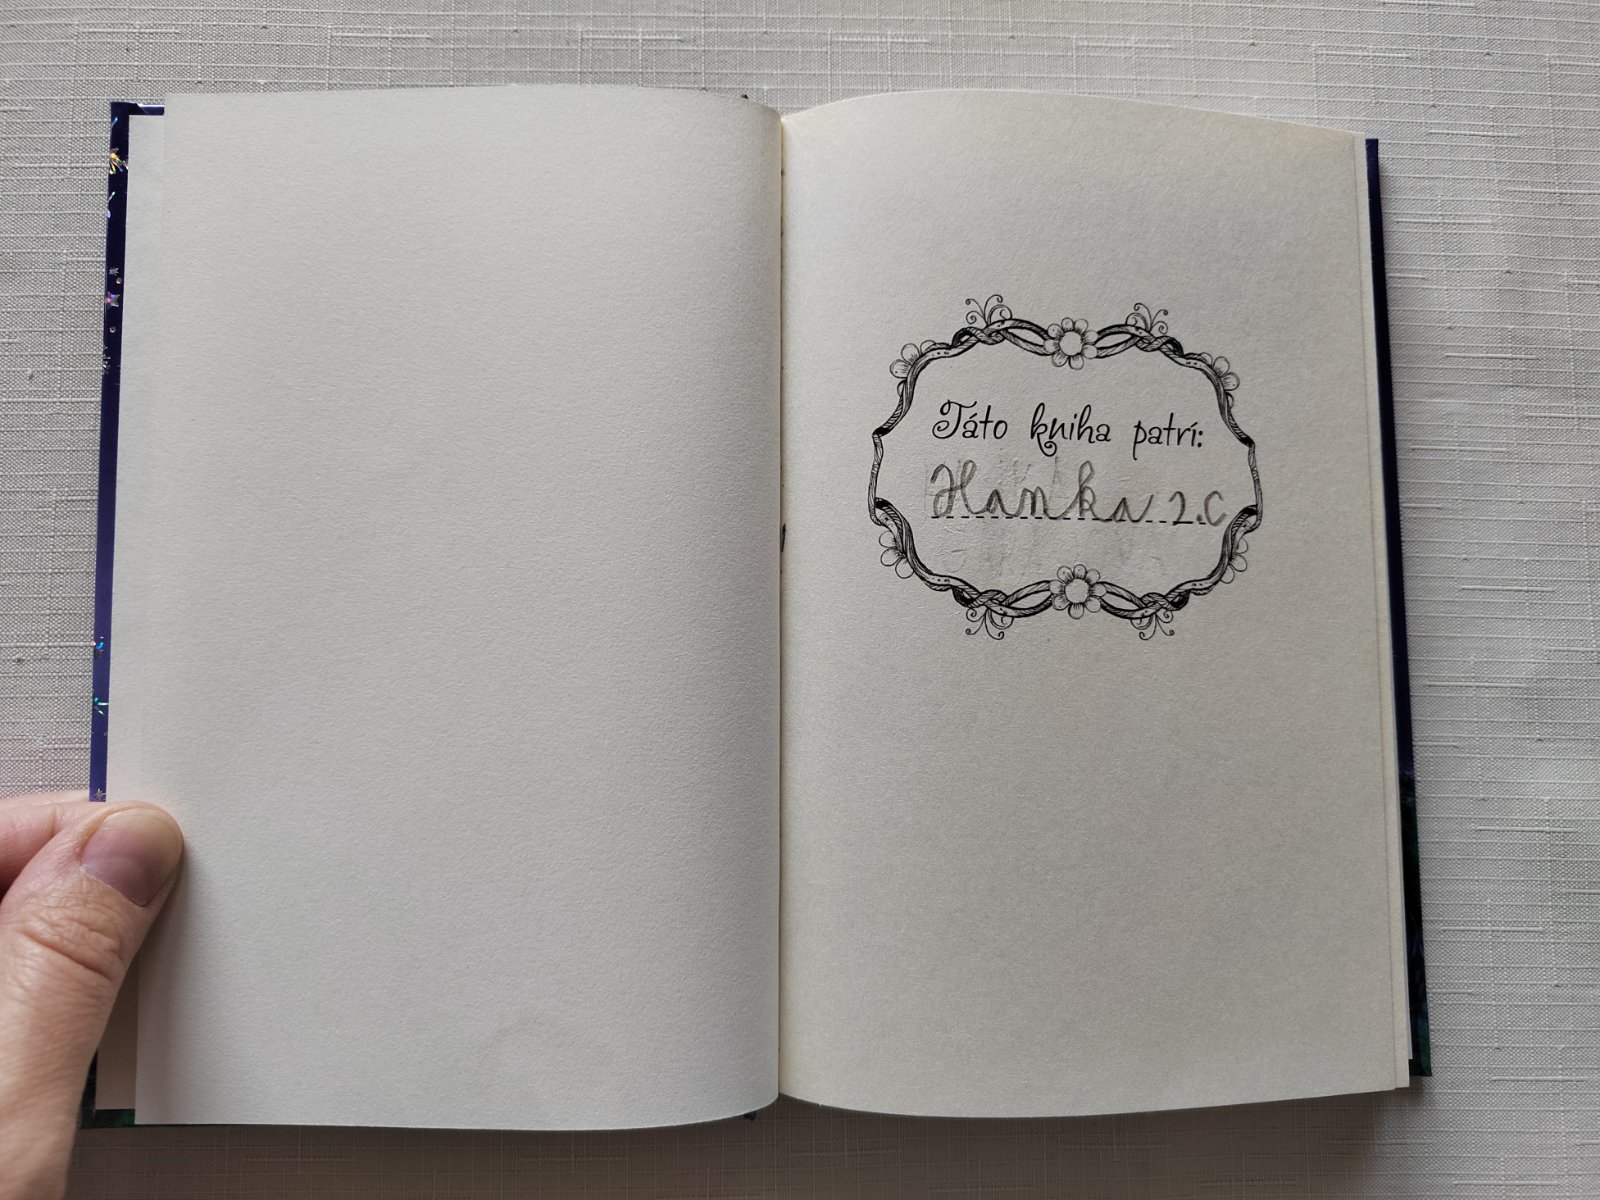 Táto kniha patrí:
Hanka 2.C